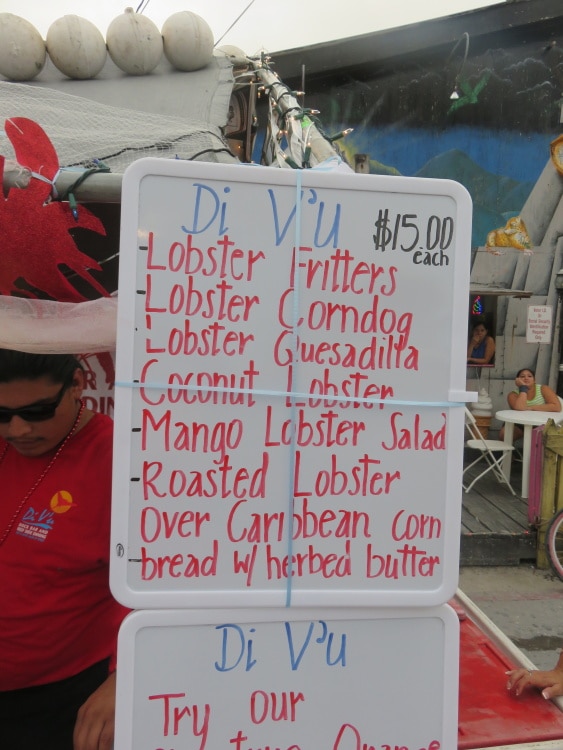 Di V'u
$15.00
each
Lobster Fritters
Lobster Corndog
Lobster Quesadilla
Coconut Lobster
Mango Lobster Salad
Roasted Lobster
Over Caribbean Corn
bread w/ herbed butter
Di V'u
Try our
Di V'u